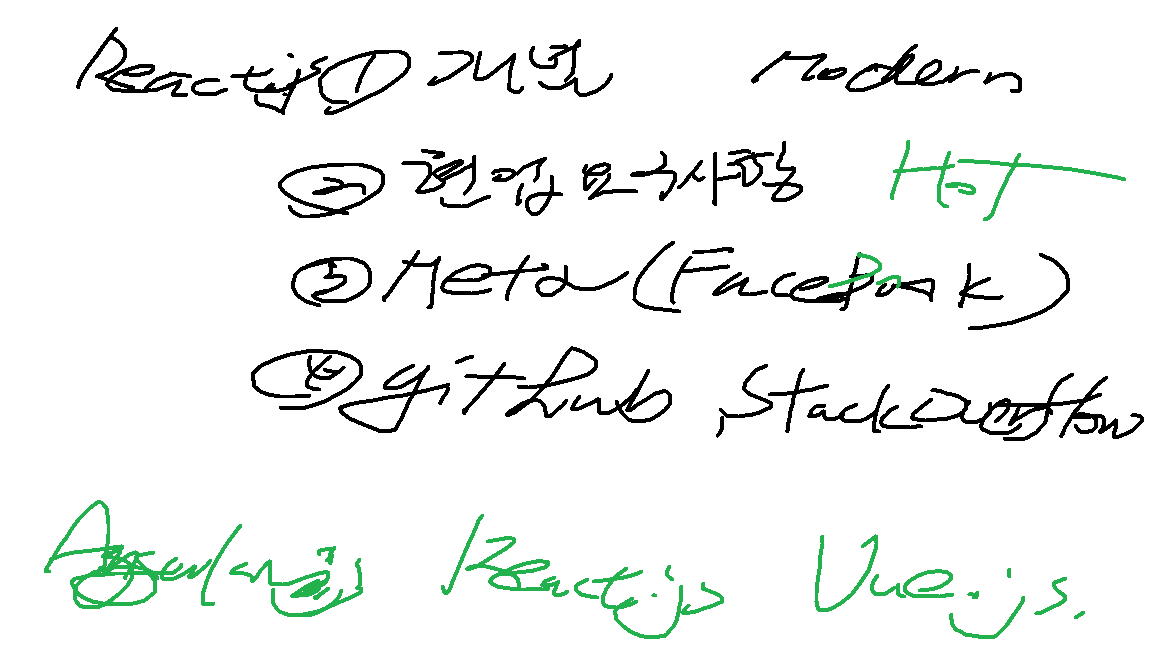 React.js ① 개념 Modern
② 현업 요구사항 HOT
③ Meta (Facebook)
④ github, StackOverflow
Angular.js React.js Vue.js.